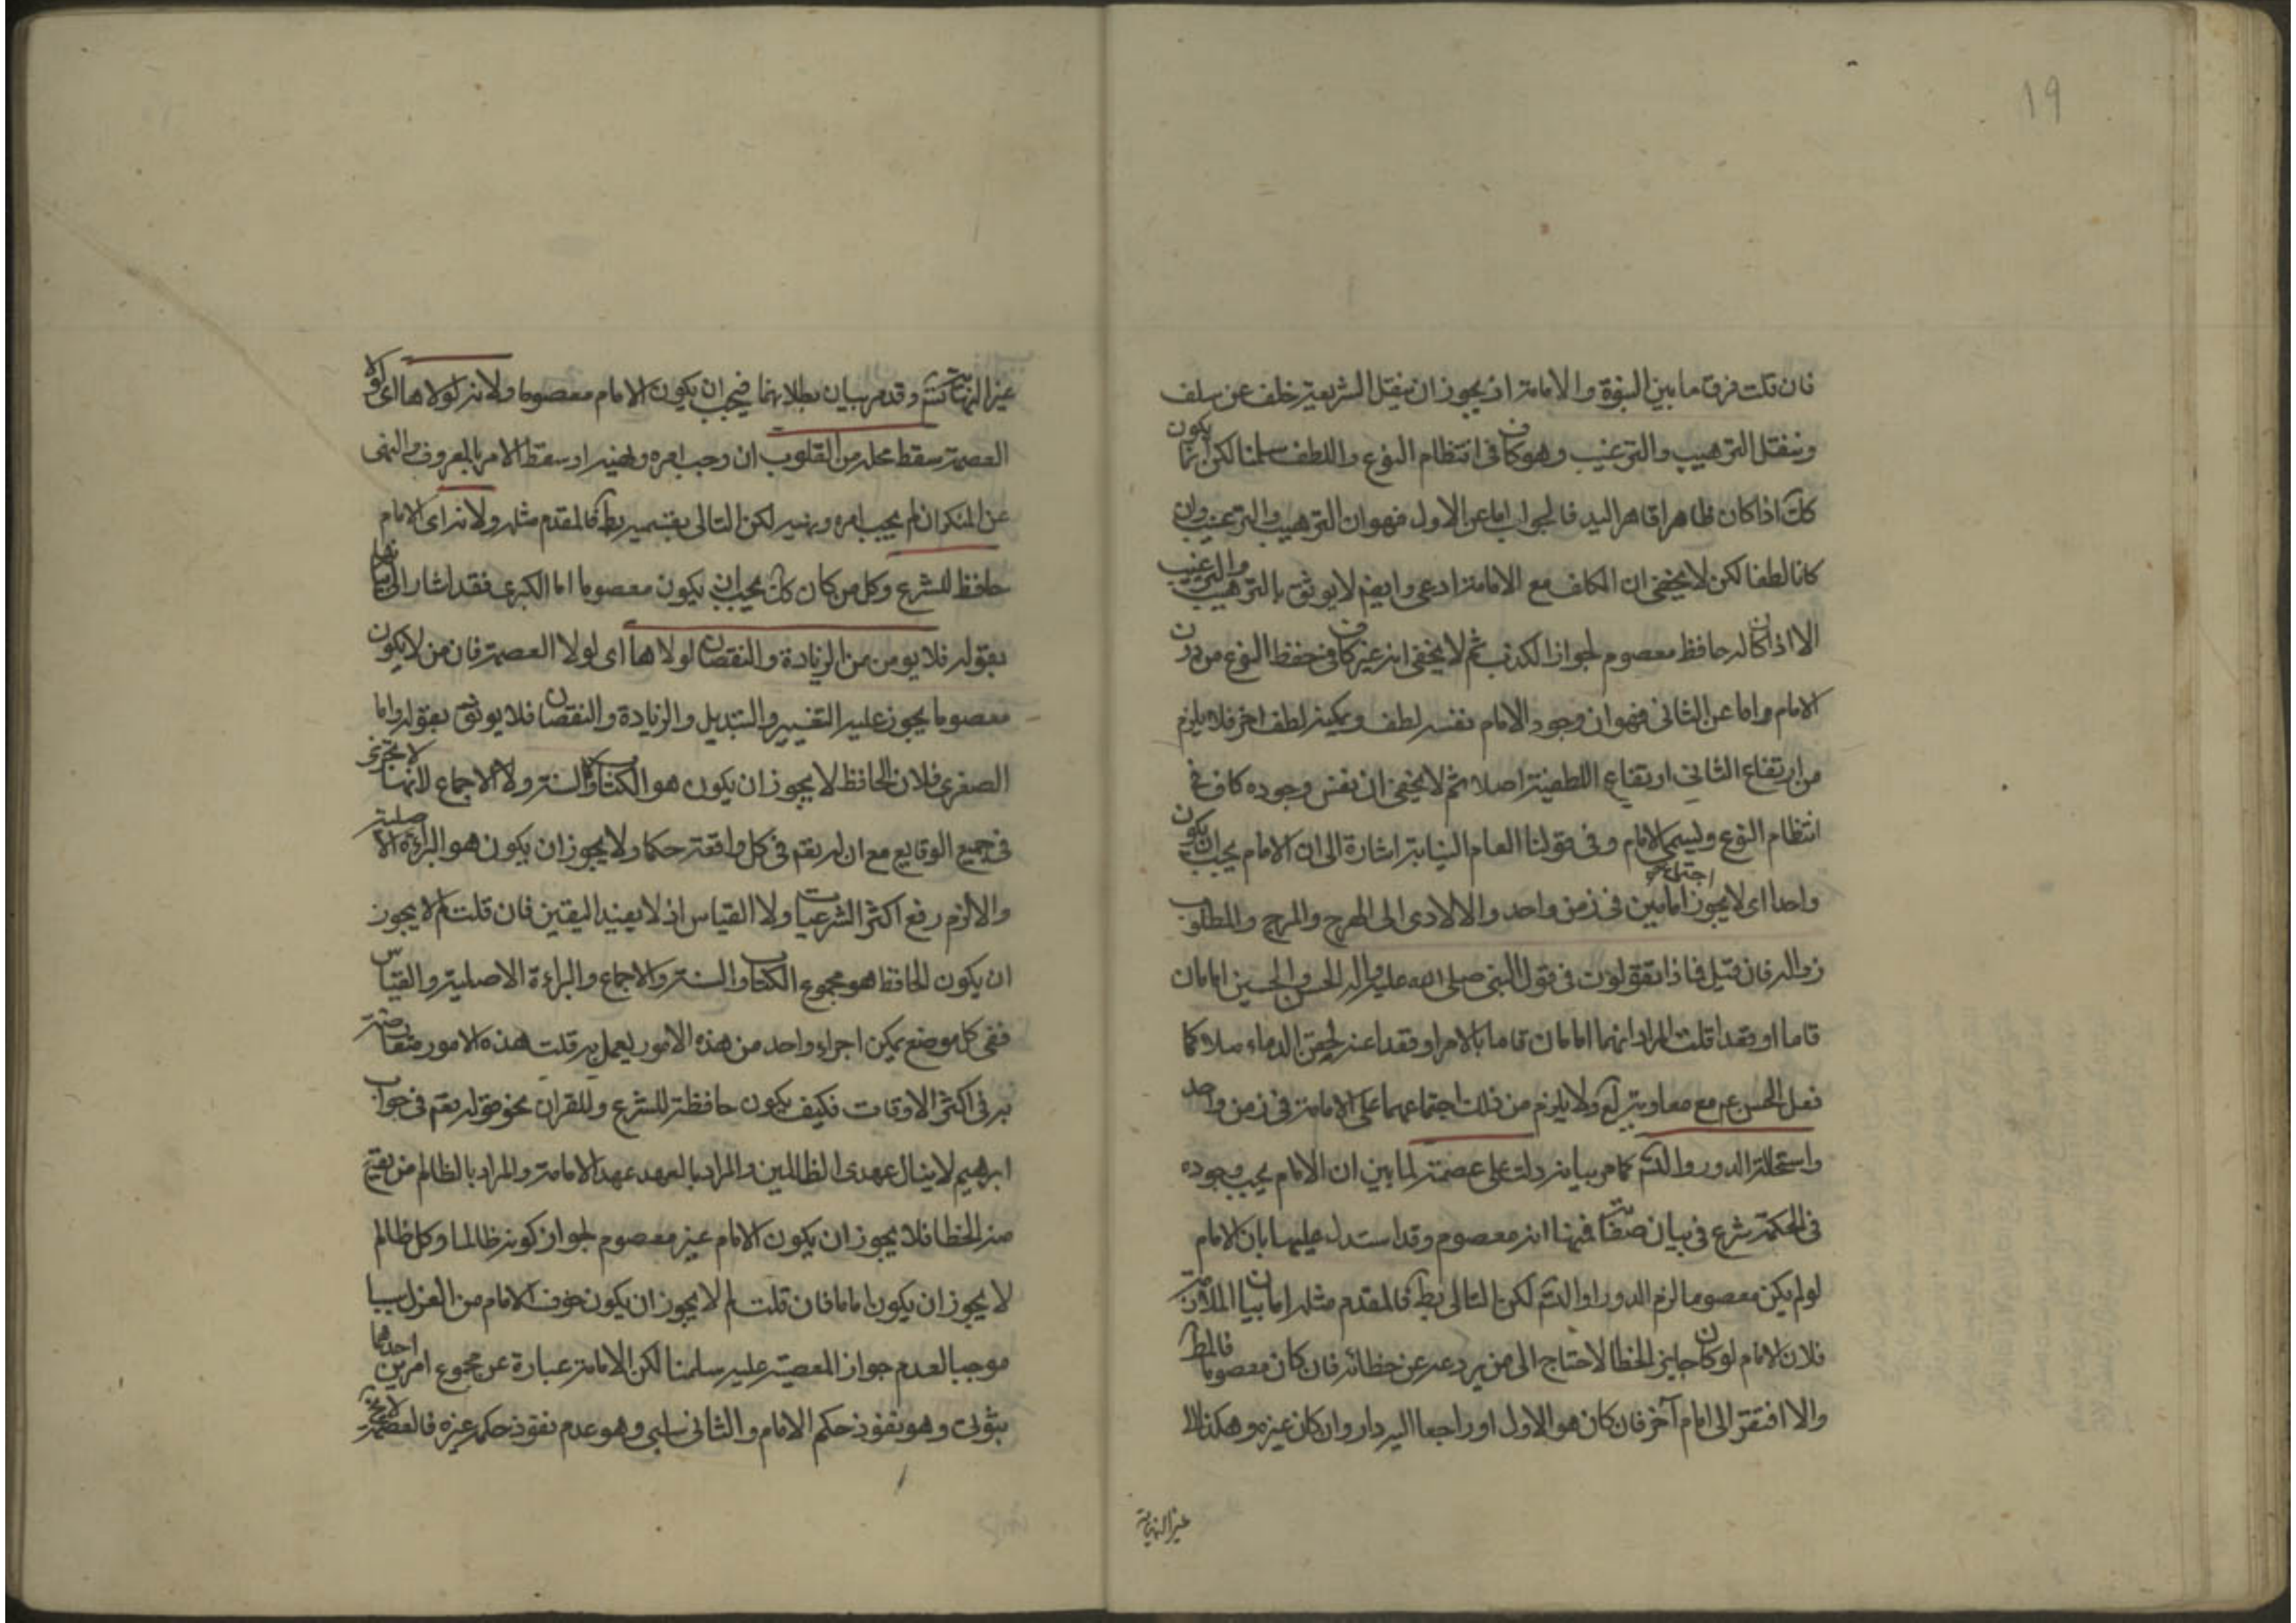 19
فان قلت فرق ما بين النبوة والامامة اذ يجوز ان ينقل الشريعة خلف عن سلف
وينقل الترهيب والترغيب وهو كاف فى انتظام النوع واللطف سلمنا لكن انما يكون
كك اذا كان ظاهرا قاهر اليد فالجواب اما عن الاول فهو ان الترهيب والترغيب وان
كانا لطفا لكن لا يخفى ان المكلف مع الامامة ادعى وايضم لا يوثق بالترهيب والترغيب
الا اذا كان له حافظ معصوم لجواز الكذب ثم لا يخفى انه غير كاف فى حفظ النوع من دون
الامام واما عن الثانى فهو ان وجود الامام نفسه لطف وتمكينه لطف اخر فلا يلزم
من ارتفاع الثانى ارتفاع اللطفية اصلا ثم لا يخفى ان نفس وجوده كاف فى
انتظام النوع ويسمى الامام وفى قولنا العام النيابة اشارة الى ان الامام يجب ان يكون
واحدا اى لا يجوز اجتماع امامين فى زمن واحد والا لادى الى الهرج والمرج والمطلوب
زواله فان قيل فماذا تقولون فى قول النبى صلى الله عليه واله الحسن والحسين امامان
قاما او قعدا قلت المراد انهما امامان قاما بالامر او قعدا عنه لحقن الدماء مثلا كما
فعل الحسن عم مع معاوية ولا يلزم من ذلك اجتماعهما على الامامة فى زمن واحد
واستحالة الدور والتسم كما مر بيانه دلت على عصمته لما بين ان الامام يجب وجوده
فى الحكمة شرع فى بيان صفاته فمنها انه معصوم وقد استدل عليها بان الامام
لو لم يكن معصوما لزم الدور او التسم لكن التالى بط فالمقدم مثله اما بيان الملازمة
فلان الامام لو كان جايز الخطا لاحتاج الى من يردعه عن خطائه فان كان معصوما فالمط
والا افتقر الى امام آخر فان كان هو الاول او راجعا اليه دار وان كان غيره وهكذا الى
غير النهاية
غير النهاية تسم وقد مر بيان بطلانهما فيجب ان يكون الامام معصوما ولانه لولاها اى لولا
العصمة سقط محله من القلوب ان وجب امره ونهيه او سقط الامر بالمعروف والنهى
عن المنكر ان لم يجب امره ونهيه لكن التالى بقسميه بط فالمقدم مثله ولانه اى الامام
حافظ للشرع وكل من كان كك يجب ان يكون معصوما اما الكبرى فقد اشار الى بيانها
بقوله فلا يومن من الزيادة والنقصان لولاها اى لولا العصمة فان من لا يكون
معصوما يجوز عليه التغيير والتبديل والزيادة والنقصان فلا يوثق بقوله واما
الصغرى فلان الحافظ لا يجوز ان يكون هو الكتاب والسنة ولا الاجماع لانها لا تجرى
فى جميع الوقايع مع ان له تعم فى كل واقعة حكما ولا يجوز ان يكون هو البراءة الاصلية
والا لزم رفع اكثر الشرعيات ولا القياس اذ لا يفيد اليقين فان قلت لم لا يجوز
ان يكون الحافظ هو مجموع الكتاب والسنة والاجماع والبراءة الاصلية والقياس
ففى كل موضع يمكن اجراء واحد من هذه الامور يعمل به قلت هذه الامور متعارضة
فى اكثر الاوقات فكيف يكون حافظة للشرع وللقران نحو قوله تعم فى جواب
ابرهيم لا ينال عهدى الظالمين والمراد بالعهد عهد الامامة والمراد بالظالم من يقع
منه الخطا فلا يجوز ان يكون الامام غير معصوم لجواز كونه ظالما وكل ظالم
لا يجوز ان يكون اماما فان قلت لم لا يجوز ان يكون خوف الامام من العزل سببا
موجبا لعدم جواز المعصية عليه سلمنا لكن الامامة عبارة عن مجموع امرين احدهما
ثبوتى وهو نفوذ حكم الامام والثانى سلبى وهو عدم نفوذ حكم غيره فالعصمة